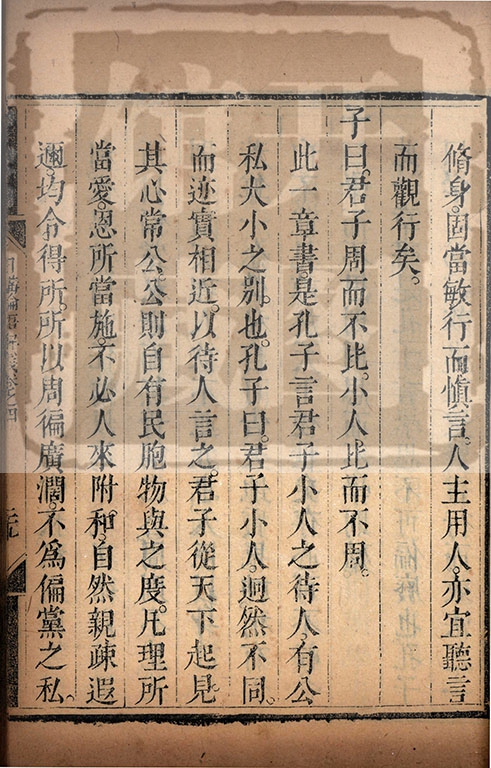 脩身。固當敏行而慎言。人主用人。亦宜聽言
而觀行矣。
子曰。君子周而不比。小人比而不周。
此一章書。是孔子言君子小人之待人。有公
私大小之別也。孔子曰。君子小人。迥然不同。
而迹實相近。以待人言之。君子從天下起見。
其心常公。公則自有民胞物與之度。凡理所
當愛。恩所當施。不必人來附和。自然親疎遐
邇。均令得所。所以周徧廣濶。不為偏黨之私。
日講論語解義卷之四